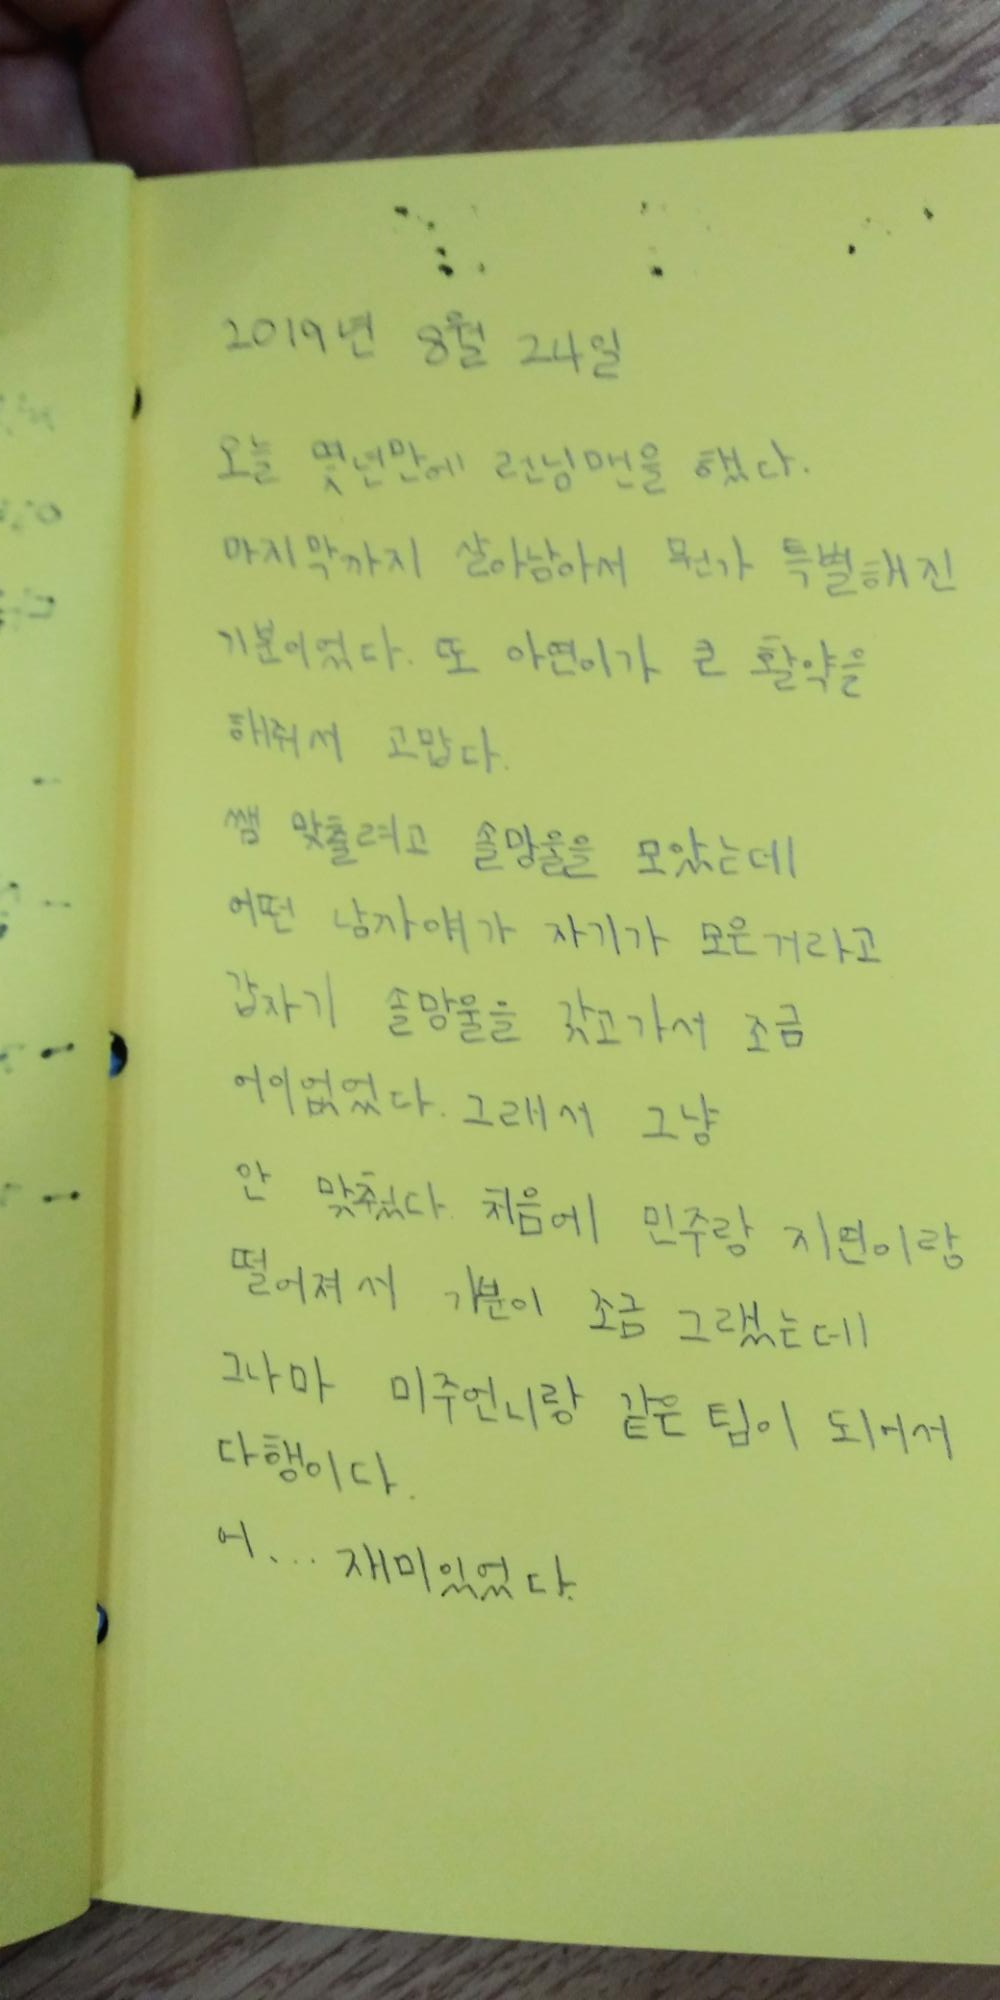 2019년 8월 24일
오늘 몇년만에 런닝맨을 했다.
마지막까지 살아남아서 뭔가 특별해진
기분이었다. 또 아연이가 큰 활약을
해줘서 고맙다.
쌤 맞출려고 솔망울을 모았는데
어떤 남자얘가 자기가 모은거라고
갑자기 솔망울을 갖고가서 조금
어이없었다. 그래서 그냥
안 맞췄다. 처음에 민주랑 지연이랑
떨어져서 기분이 조금 그랬는데
그나마 미주언니랑 같은 팀이 되어서
다행이다.
어... 재미있었다.